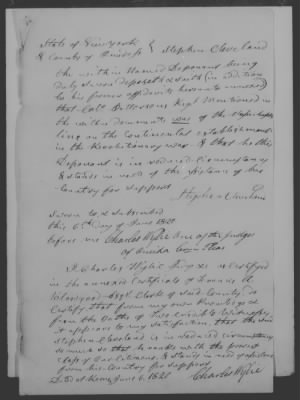 State of New York
& County of Oneida } Stephen Cleveland
the within named Deponent being
duly sworn deposeth & saith (in addition
to his former affidavit hereunto annexed)
that Colt Pattersons Regt mentioned in
the within documents was of the
line on the Continental establishment
in the Revolutionary war & that he this
Deponent is in reduced circumstances
& stands in need of the assistance of his
Country for support
Stephen Cleveland
Sworn to & subscribed
this 6th Day of June 1820
before me Charles Wylie One of the Judges
of Oneida Com Pleas
I Charles Wylie Judge as certified
in the annexed Certificate of
Clerk of said County do
Certify that from my own Knowledge &
from the Oaths of two credible Witnesses
it appears to my satisfaction, that the said
Stephen Cleveland is in reduced circumstances
so much so that he ranks with the poorest
class of our citizens, & stands in need of assistance
from his Country for support
Dated at Rome June 6. 1820 Charles Wylie